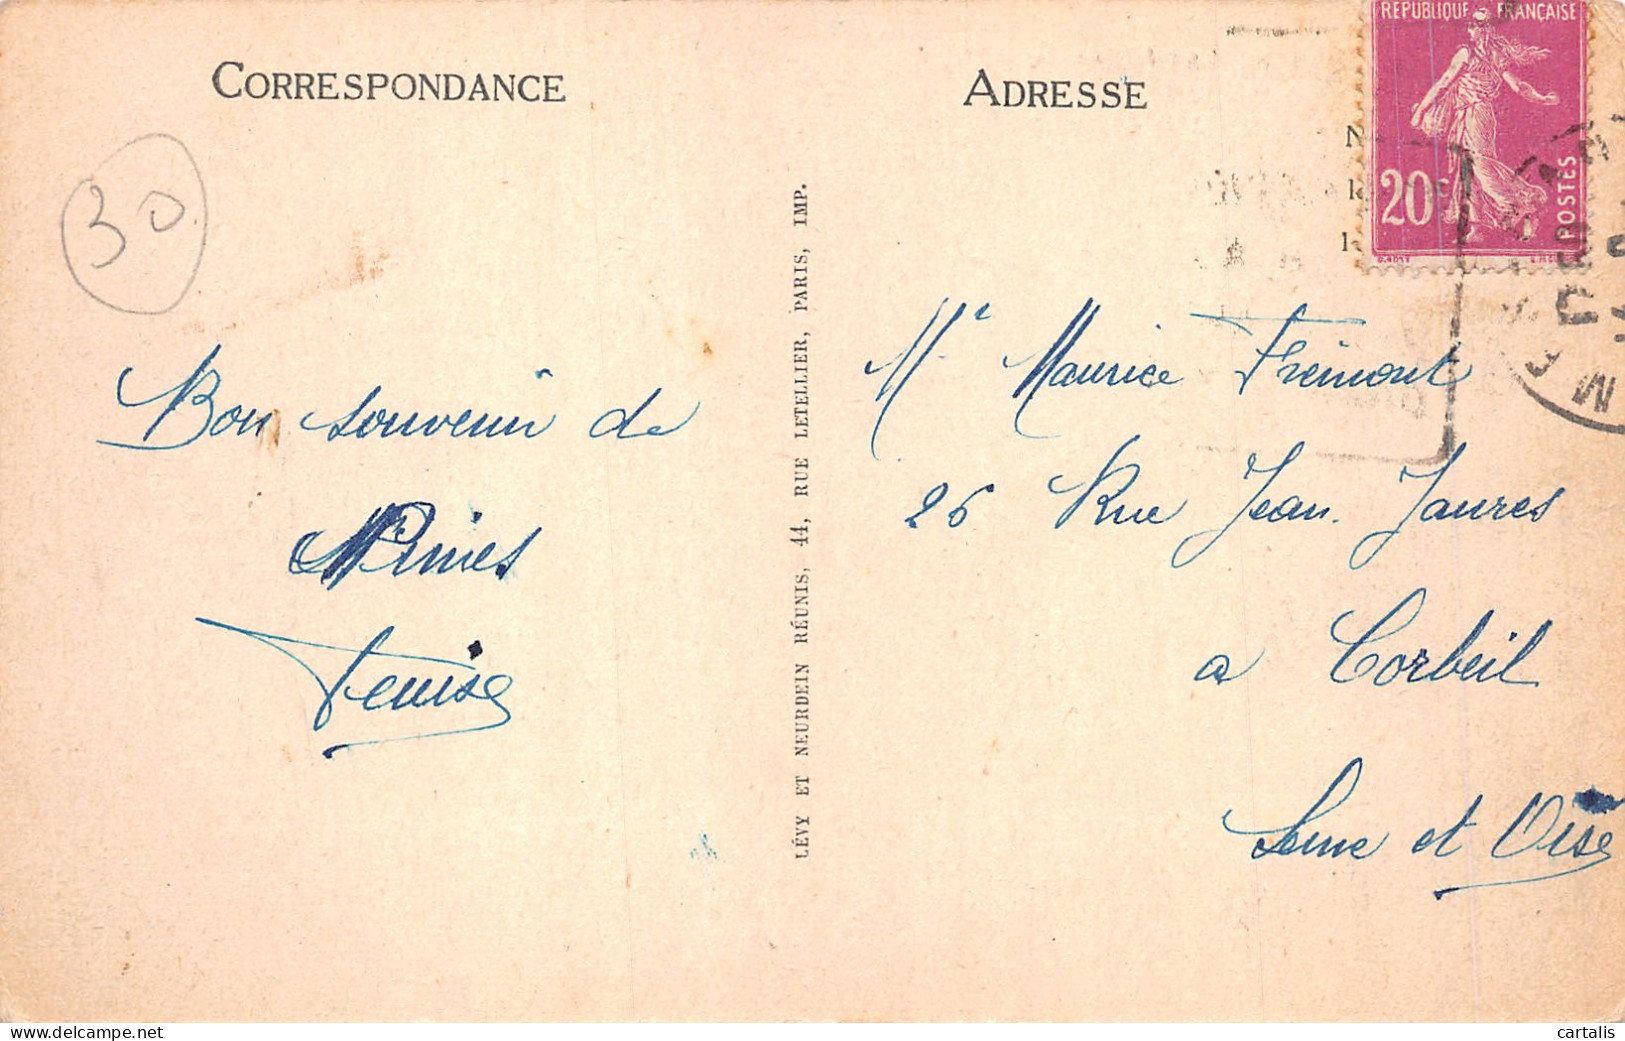 CORRESPONDANCE
ADRESSE
30
REPUBLIQUE FRANÇAISE
20c
POSTES
Bon souvenir de
Nimes
Denise
LÉVY ET NEURDEIN RÉUNIS, 44, RUE LETELLIER, PARIS, IMP.
Mr Maurice Frémont
26 Rue Jean. Jaures
a Corbeil
Seine et Oise
cartalis